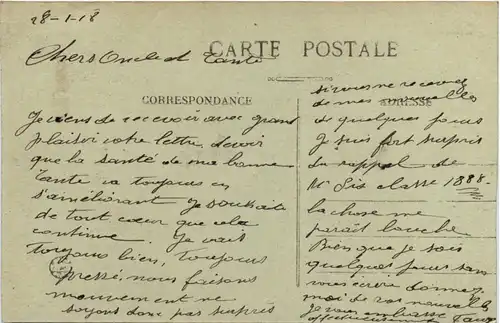 28-1-18
CARTE POSTALE
Chers Oncle et Tante
CORRESPONDANCE
ADRESSE
Je viens de recevoir avec grand
plaisir votre lettre de voir
que la santé de ma bonne
Tante va toujours en
s'améliorant Je souhaite
de tout cœur que cela
continue. Je vais
toujours bien, toujours
pressé. nous faisons
mouvement ne
soyons donc pas surpris
si vous ne recevez
de mes nouvelles
de quelques jours
Je suis fort surpris
du rappel de
Mr classe 1888.
la chose me
paraît louche
Bien que je sois
quelques jours sans
vous écrire donnez
moi de vos nouvelles
Je vous embrasse
affectueusement